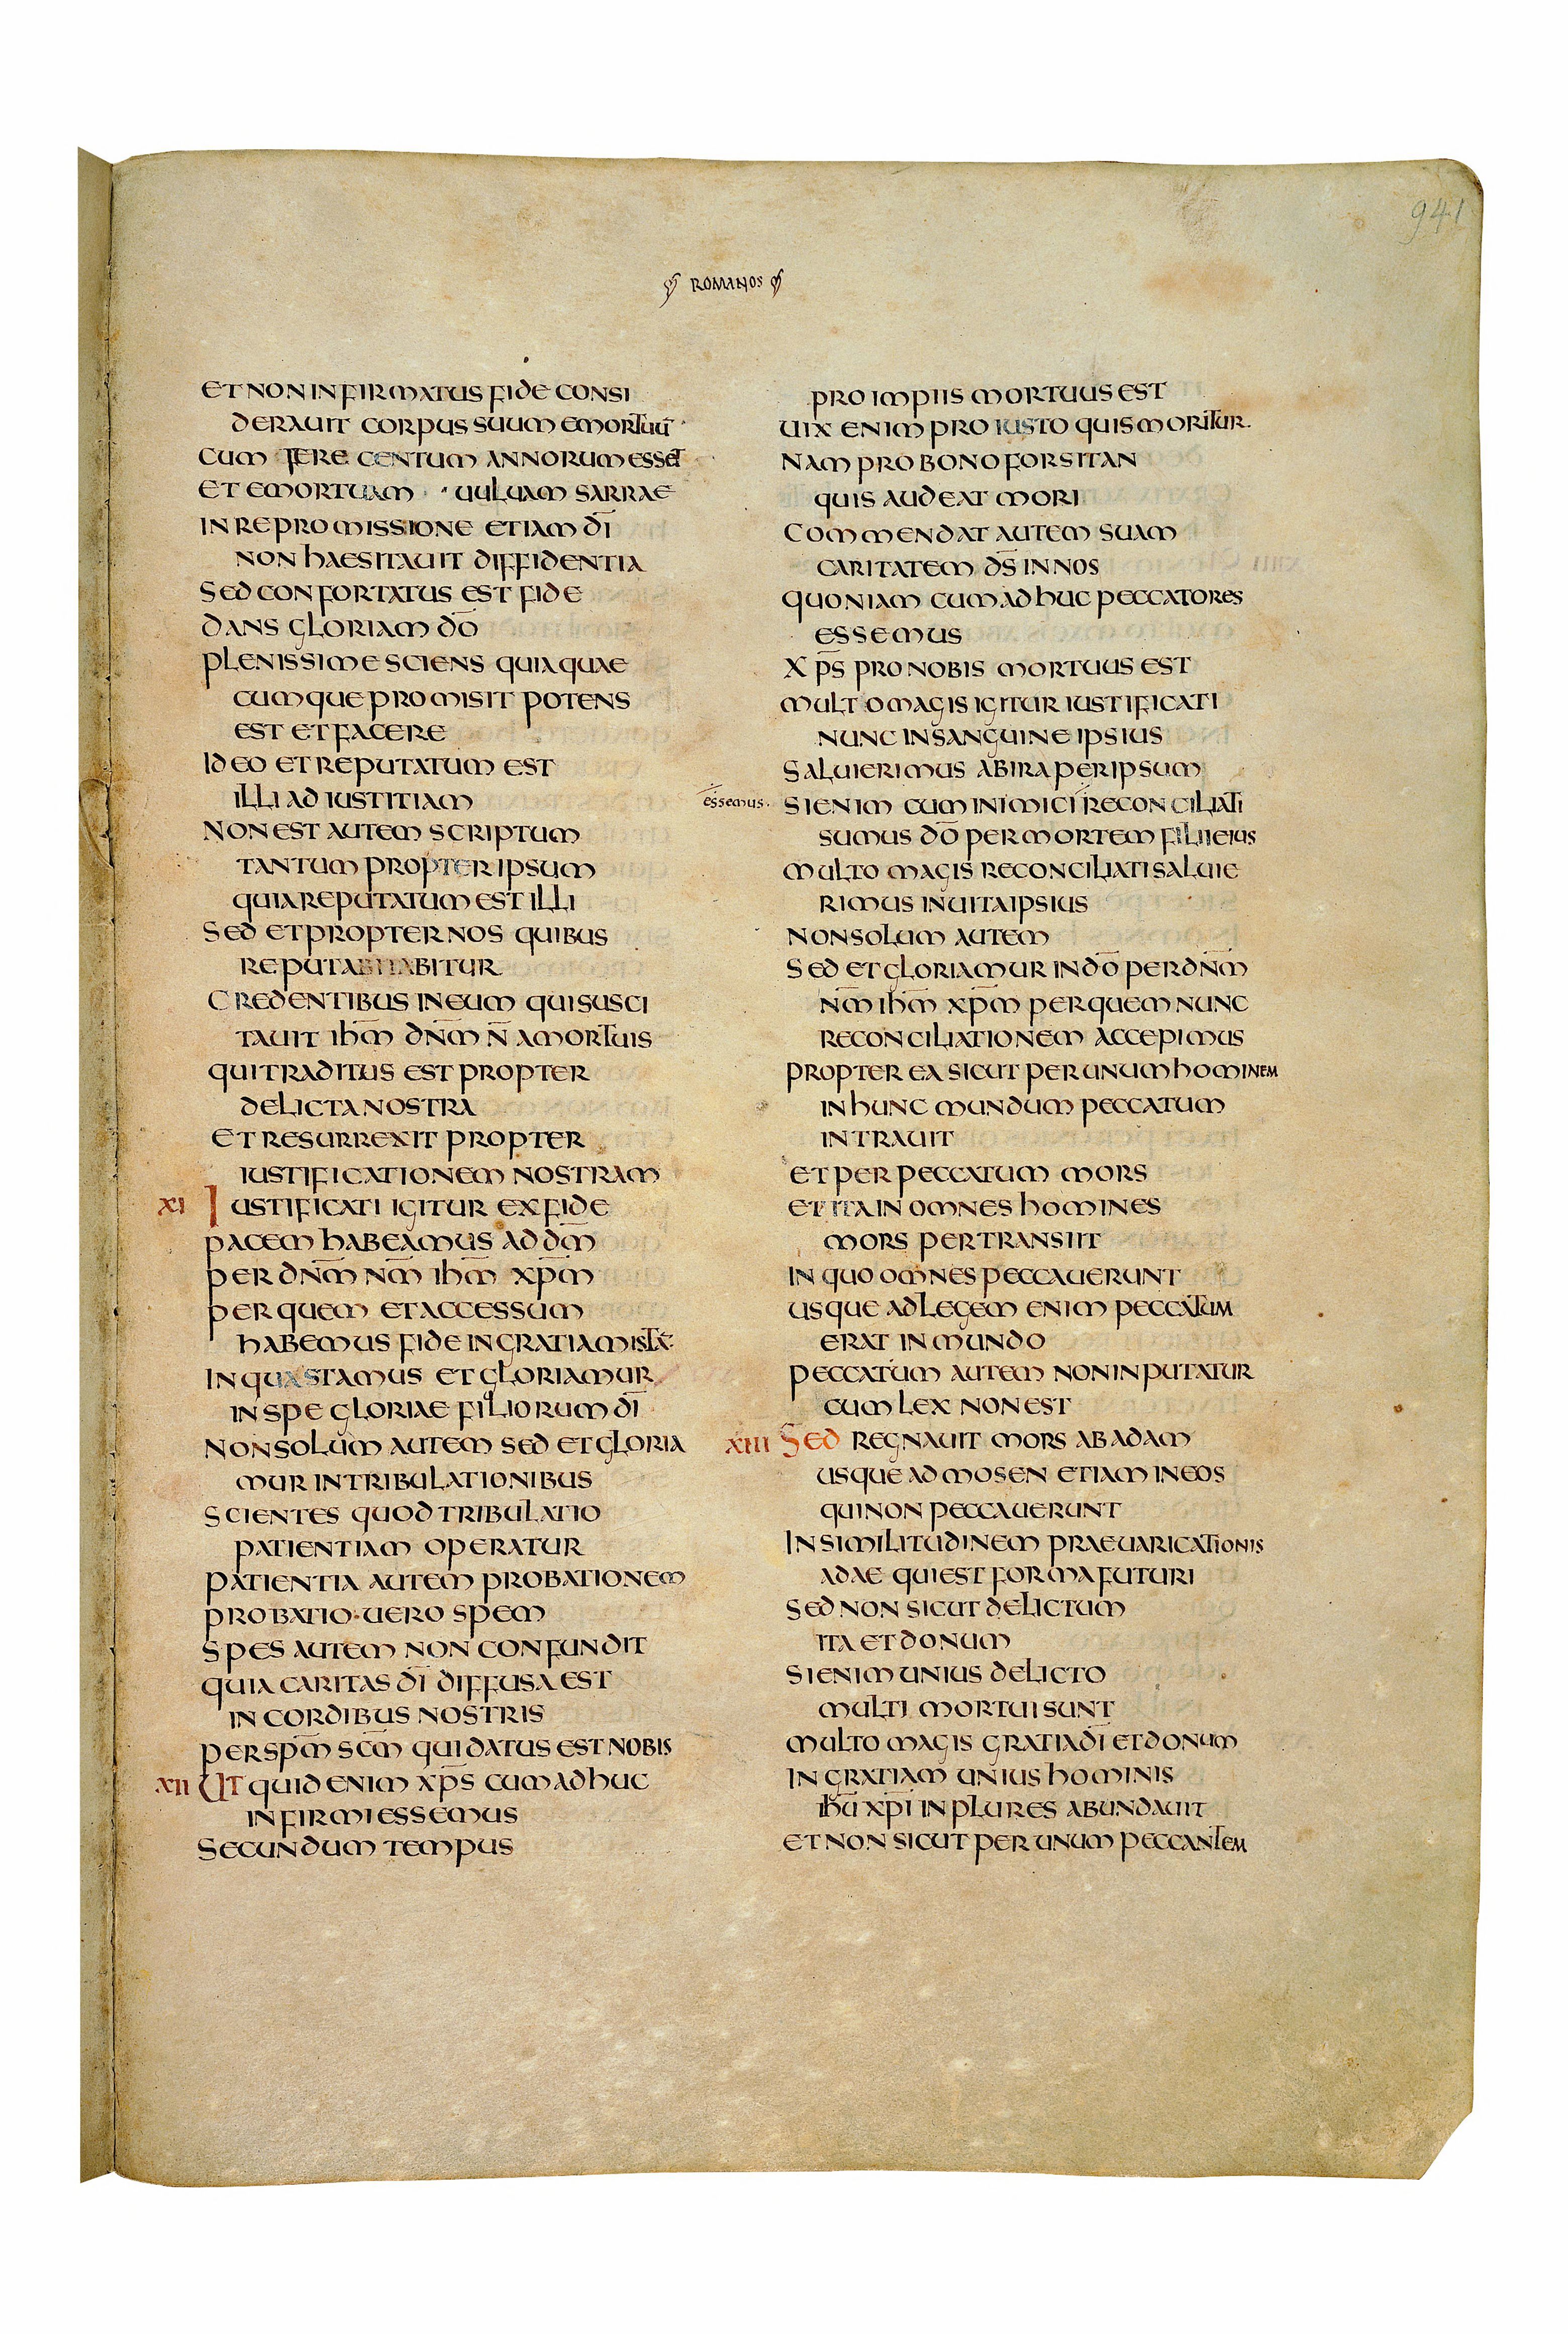 941
ROMANOS
ET NON INFIRMATUS FIDE CONSI
DERAUIT CORPUS SUUM EMORTUŪ
CUM FERE CENTUM ANNORUM ESSET
ET EMORTUAM UULUAM SARRAE
IN REPROMISSIONE ETIAM DI̅
NON HAESITAUIT DIFFIDENTIA
SED CONFORTATUS EST FIDE
DANS GLORIAM DO̅
PLENISSIME SCIENS QUIA QUAE
CUMQUE PROMISIT POTENS
EST ET FACERE
IDEO ET REPUTATUM EST
ILLI AD IUSTITIAM
NON EST AUTEM SCRIPTUM
TANTUM PROPTER IPSUM
QUIA REPUTATUM EST ILLI
SED ET PROPTER NOS QUIBUS
REPUTABITUR
CREDENTIBUS IN EUM QUI SUSCI
TAUIT IHM̅ DNM̅ N̅ A MORTUIS
QUI TRADITUS EST PROPTER
DELICTA NOSTRA
ET RESURREXIT PROPTER
IUSTIFICATIONEM NOSTRAM
XI IUSTIFICATI IGITUR EX FIDE
PACEM HABEAMUS AD DM̅
PER DNM̅ NM̅ IHM̅ XPM̅
PER QUEM ET ACCESSUM
HABEMUS FIDE IN GRATIAM ISTĀ
IN QUA STAMUS ET GLORIAMUR
IN SPE GLORIAE FILIORUM DI̅
NON SOLUM AUTEM SED ET GLORIA
MUR IN TRIBULATIONIBUS
SCIENTES QUOD TRIBULATIO
PATIENTIAM OPERATUR
PATIENTIA AUTEM PROBATIONEM
PROBATIO·UERO SPEM
SPES AUTEM NON CONFUNDIT
QUIA CARITAS DI̅ DIFFUSA EST
IN CORDIBUS NOSTRIS
PER SPM̅ SCM̅ QUI DATUS EST NOBIS
XII UT QUID ENIM XPS̅ CUM ADHUC
INFIRMI ESSEMUS
SECUNDUM TEMPUS
PRO IMPIIS MORTUUS EST
UIX ENIM PRO IUSTO QUIS MORITUR
NAM PRO BONO FORSITAN
QUIS AUDEAT MORI
COMMENDAT AUTEM SUAM
CARITATEM DS̅ IN NOS
QUONIAM CUM ADHUC PECCATORES
ESSEMUS
XPS̅ PRO NOBIS MORTUUS EST
MULTO MAGIS IGITUR IUSTIFICATI
NUNC IN SANGUINE IPSIUS
SALUI ERIMUS AB IRA PER IPSUM
essemus. SI ENIM CUM INIMICI RECONCILIATI
SUMUS DO̅ PER MORTEM FILII EIUS
MULTO MAGIS RECONCILIATI SALUI E
RIMUS IN UITA IPSIUS
NON SOLUM AUTEM
SED ET GLORIAMUR IN DO̅ PER DNM̅
NM̅ IHM̅ XPM̅ PER QUEM NUNC
RECONCILIATIONEM ACCEPIMUS
PROPTEREA SICUT PER UNUM HOMINEM
IN HUNC MUNDUM PECCATUM
INTRAUIT
ET PER PECCATUM MORS
ET ITA IN OMNES HOMINES
MORS PERTRANSIIT
IN QUO OMNES PECCAUERUNT
USQUE AD LEGEM ENIM PECCATUM
ERAT IN MUNDO
PECCATUM AUTEM NON INPUTATUR
CUM LEX NON EST
XIII SED REGNAUIT MORS AB ADAM
USQUE AD MOSEN ETIAM IN EOS
QUI NON PECCAUERUNT
IN SIMILITUDINEM PRAEUARICATIONIS
ADAE QUI EST FORMA FUTURI
SED NON SICUT DELICTUM
ITA ET DONUM
SI ENIM UNIUS DELICTO
MULTI MORTUI SUNT
MULTO MAGIS GRATIA DI̅ ET DONUM
IN GRATIAM UNIUS HOMINIS
IHU̅ XPI̅ IN PLURES ABUNDAUIT
ET NON SICUT PER UNUM PECCANTEM